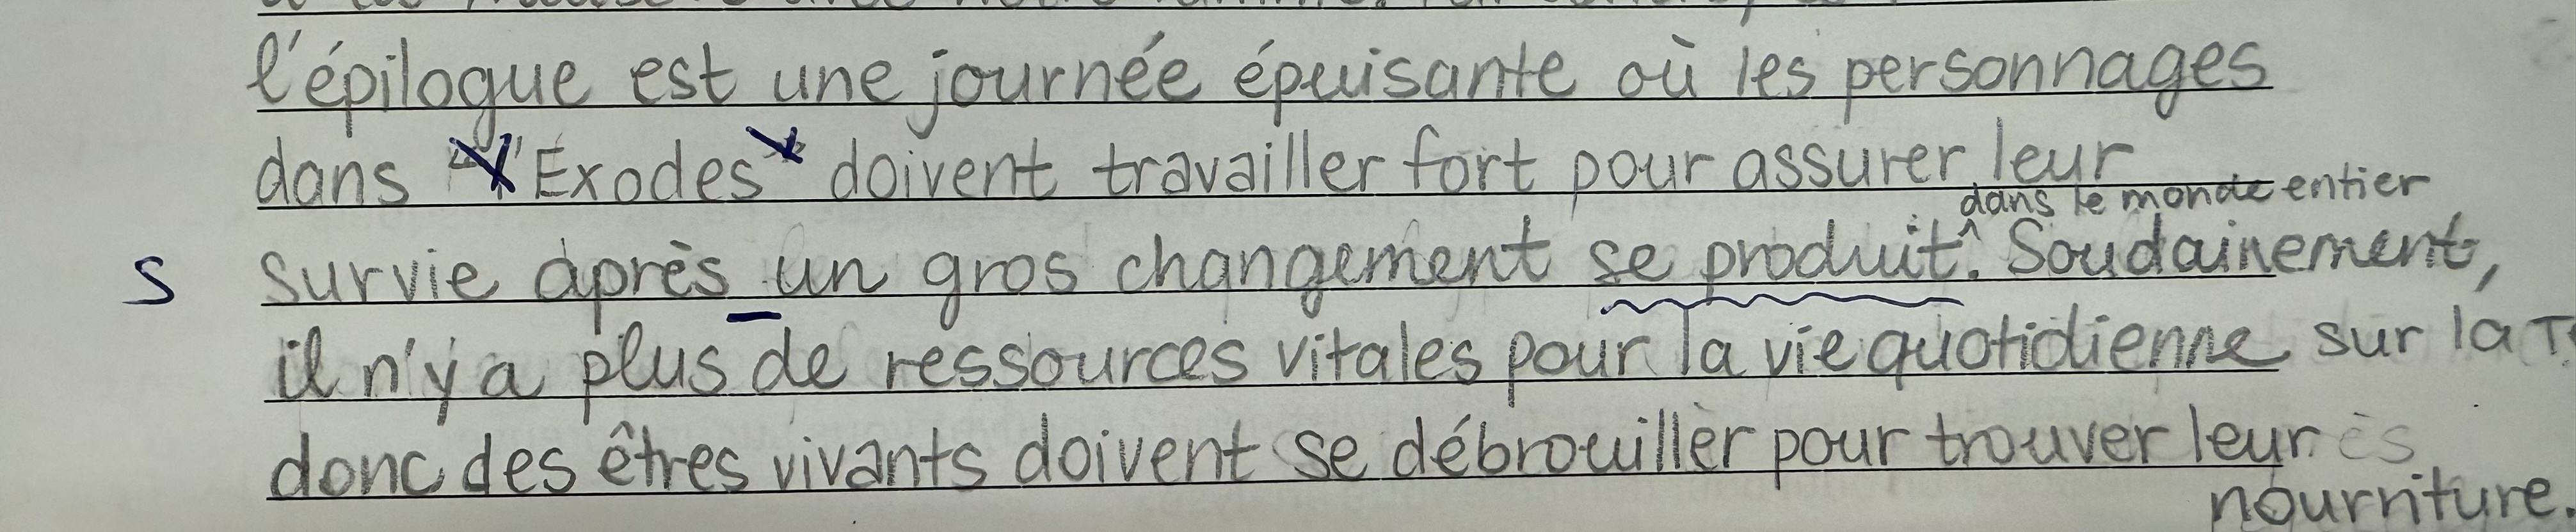 l'épilogue est une journée épuisante où les personnages
dans "l'Éxodes" doivent travailler fort pour assurer leur
dans le monde entier
s survie après un gros changement se produit^. Soudainement,
il n'y a plus de ressources vitales pour la vie quotidienne sur la T
donc des êtres vivants doivent se débrouiller pour trouver leur
nourriture.